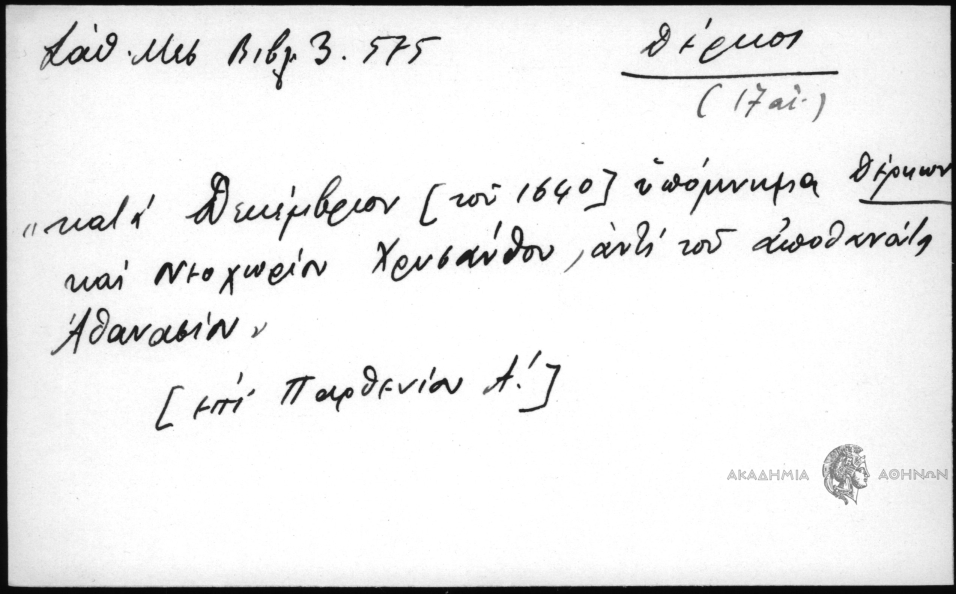 Σάθ. Μεσ Βιβλ 3. 575
Δέρκοι
(17 αἰ.)
"κατά Δεκέμβριον [τοῦ 1640] ὑπόμνημα Δέρκων
καί Νεοχωρίου Χρυσάνθου, ἀντί τοῦ ἀποθανόντος
Ἀθανασίου"
[ἐπί Παρθενίου Α΄]
ΑΚΑΔΗΜΙΑ ΑΘΗΝΩΝ